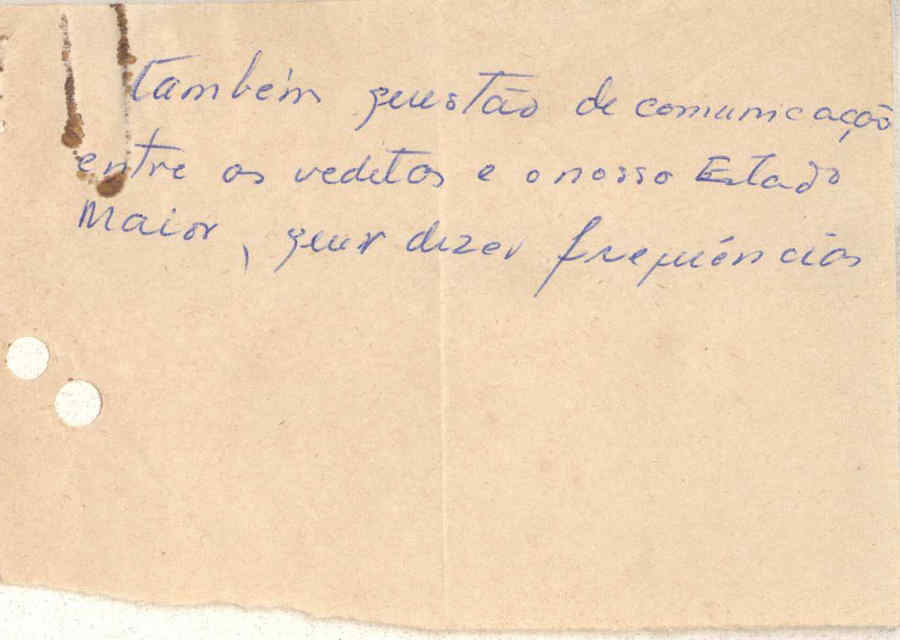 também questão de comunicação
entre os veditos e o nosso Estado
Maior, quer dizer frequências